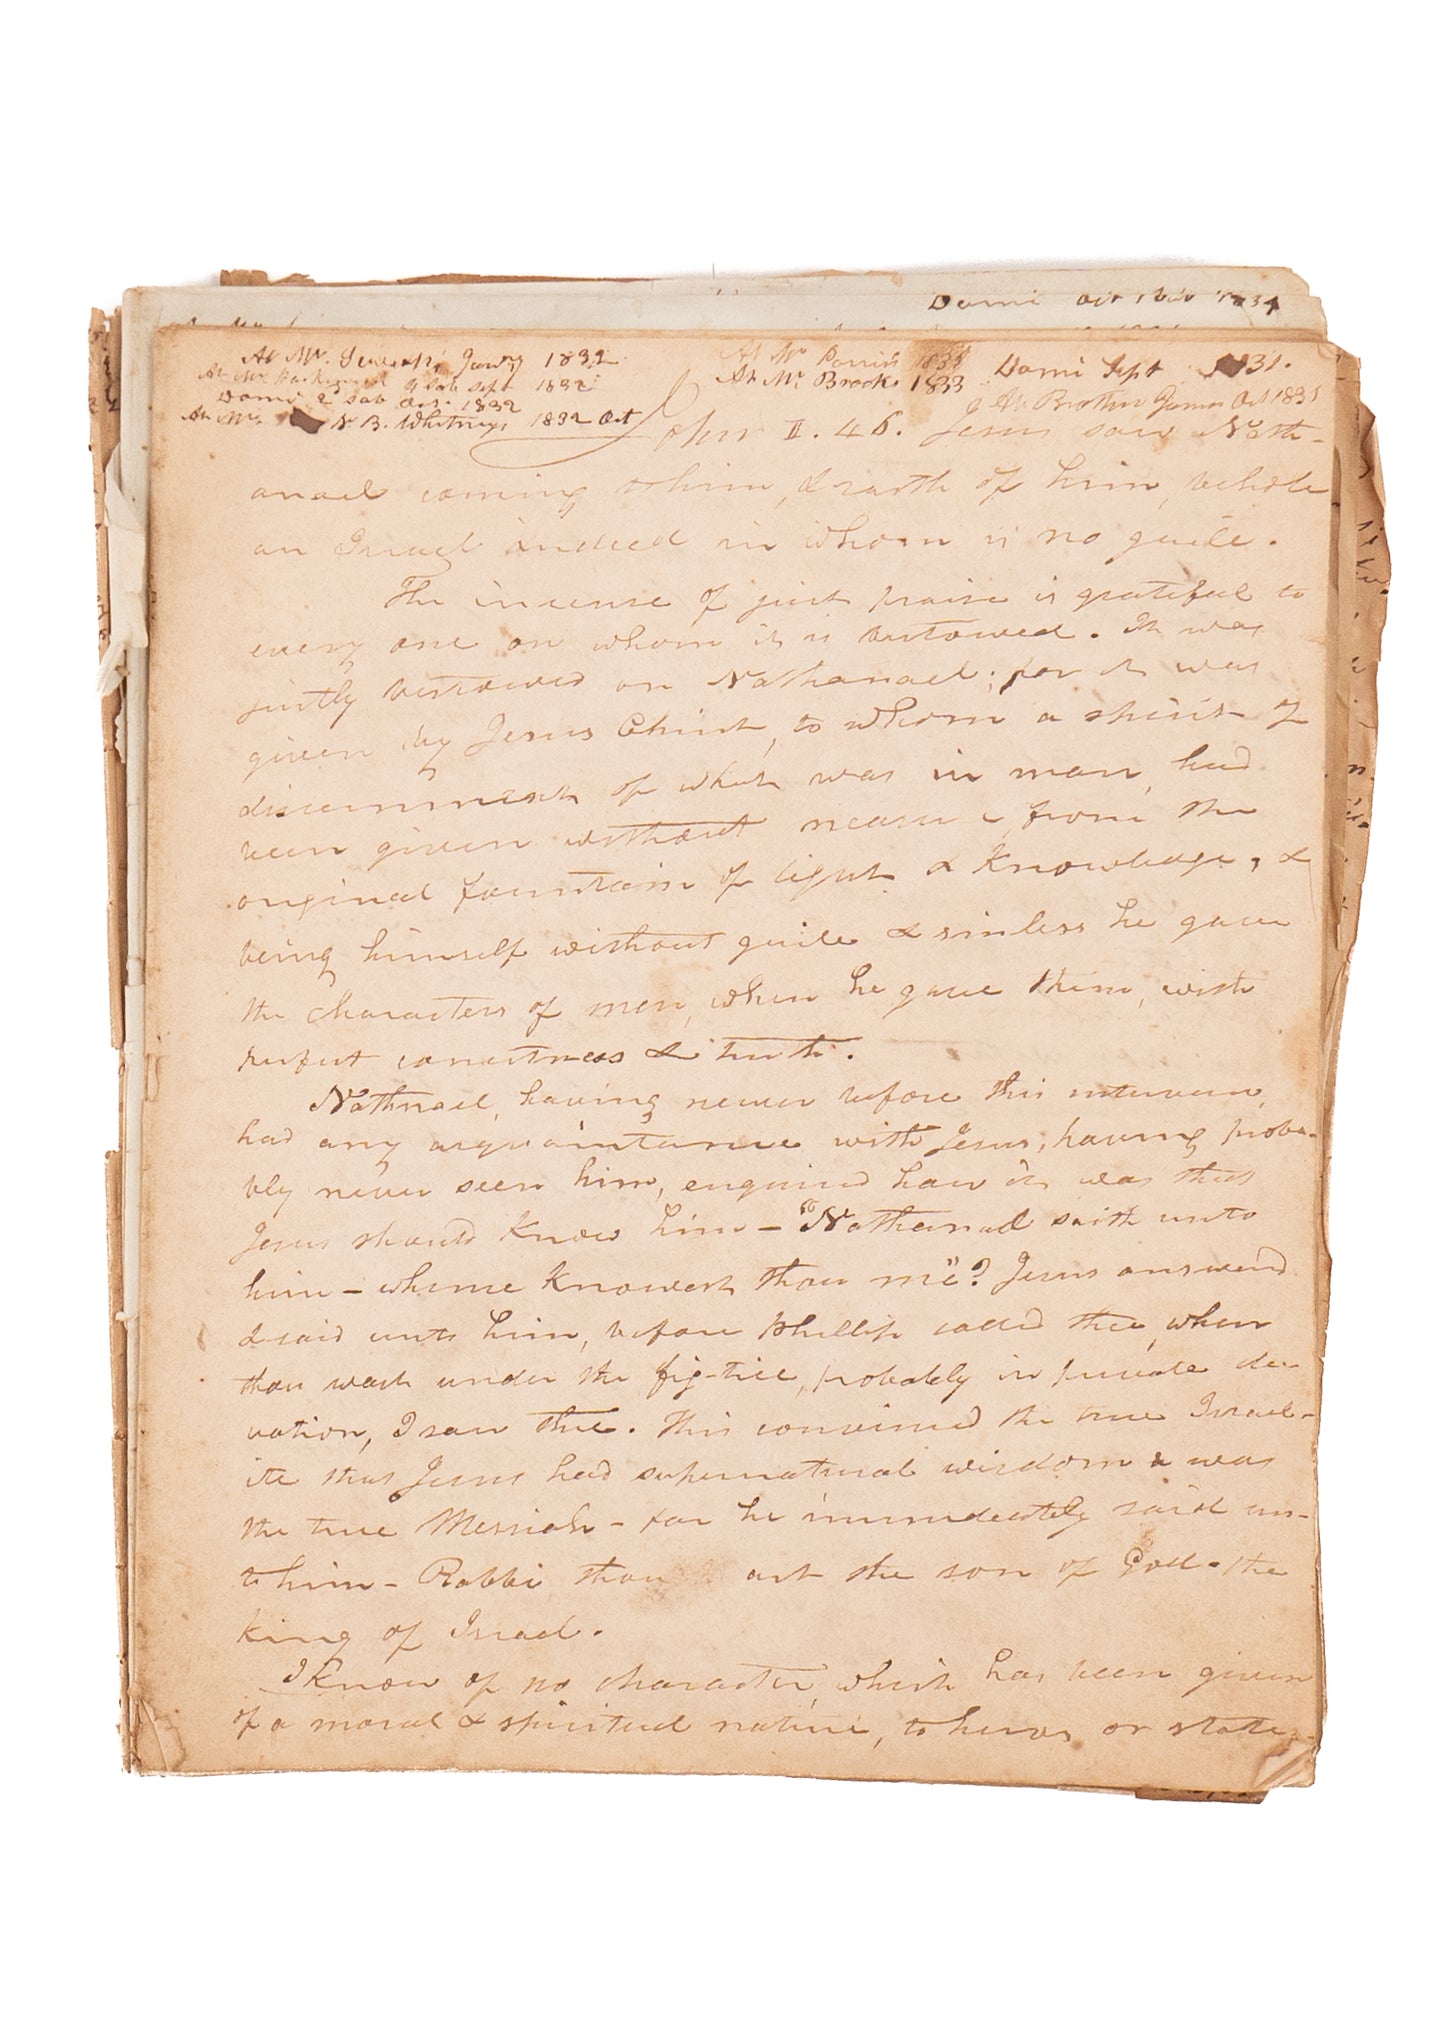 Domi Oct 1834
At Mr. Jany 1832
At Mr. 4 Sab. Sept 1832
Domi 2d Sab Oct. 1832
At Mr. N. B. Whitneys 1832 Oct
At Mr 1835
At Mr. Brooks 1833
Domi Sept 31.
At Brother James Oct 1835
John II. 46. Jesus saw Nath-
anael coming to him, & saith of him, behold
an Israel indeed in whom is no guile.
The incense of just praise is grateful to
every one on whom it is bestowed. It was
justly bestowed on Nathanael; for it was
given by Jesus Christ, to whom a spirit of
discernment of what was in man, had
been given without measure, from the
original fountain of light & knowledge, &
being himself without guile & sinless he gave
the characters of men, when he gave them, with
perfect correctness & truth.
Nathnael, having never before this interview,
had any acquaintance with Jesus, having proba-
bly never seen him, enquired how it was that
Jesus should know him - "Nathanael saith unto
him - whence knowest thou me"? Jesus answered
& said unto him, before Phillip called thee, when
thou wast under the fig-tree, probably in private de-
votion, I saw thee. This convinced the true Israel-
ite that Jesus had supernatural wisdom & was
the true Messiah - for he immedeately said un-
to him - Rabbi thou art the son of God - the
king of Israel.
I know of no character, which has been given
of a moral & spiritual nature, to heroes or state